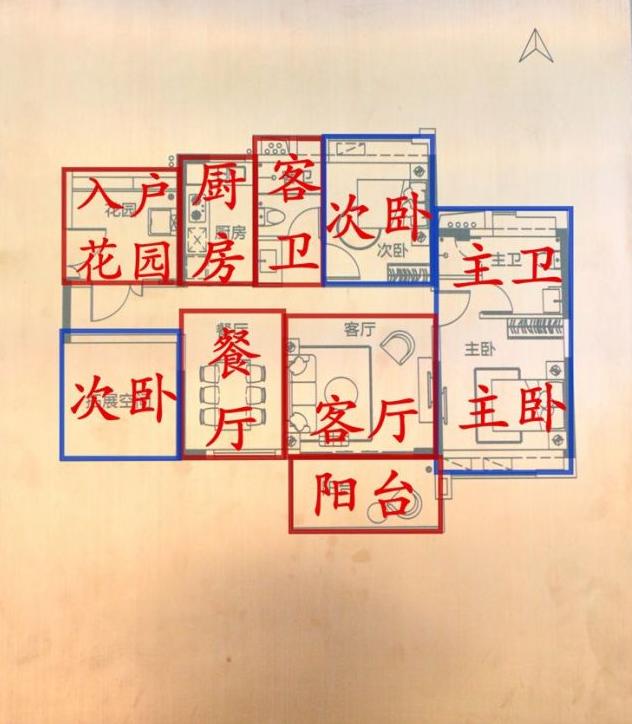 入户
花园
花园
厨
房
厨房
客
卫
次卧
次卧
主卫
主卫
次卧
拓展空
餐厅
餐
厅
客厅
客厅
主卧
主卧
阳台